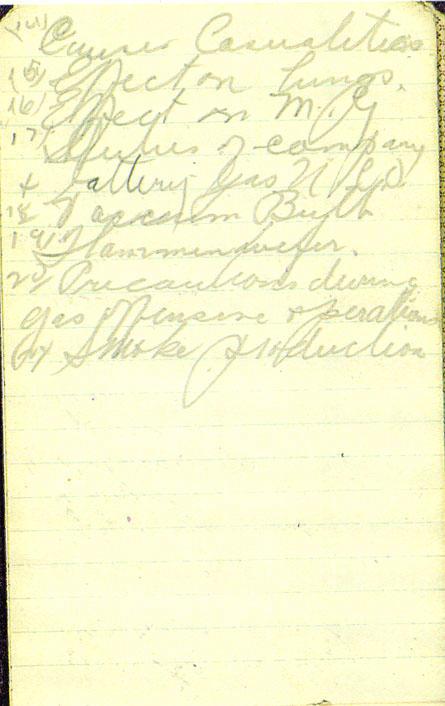 (14) Causes Casualities
(15) Effect on Lungs.
16) Effect on M. G
17) Duties of company
+ battery gas N.C.O
18 Vacuum Bulb
19) Flammenwerfer.
20) Precautions during
gas offensive operations
Smoke Production